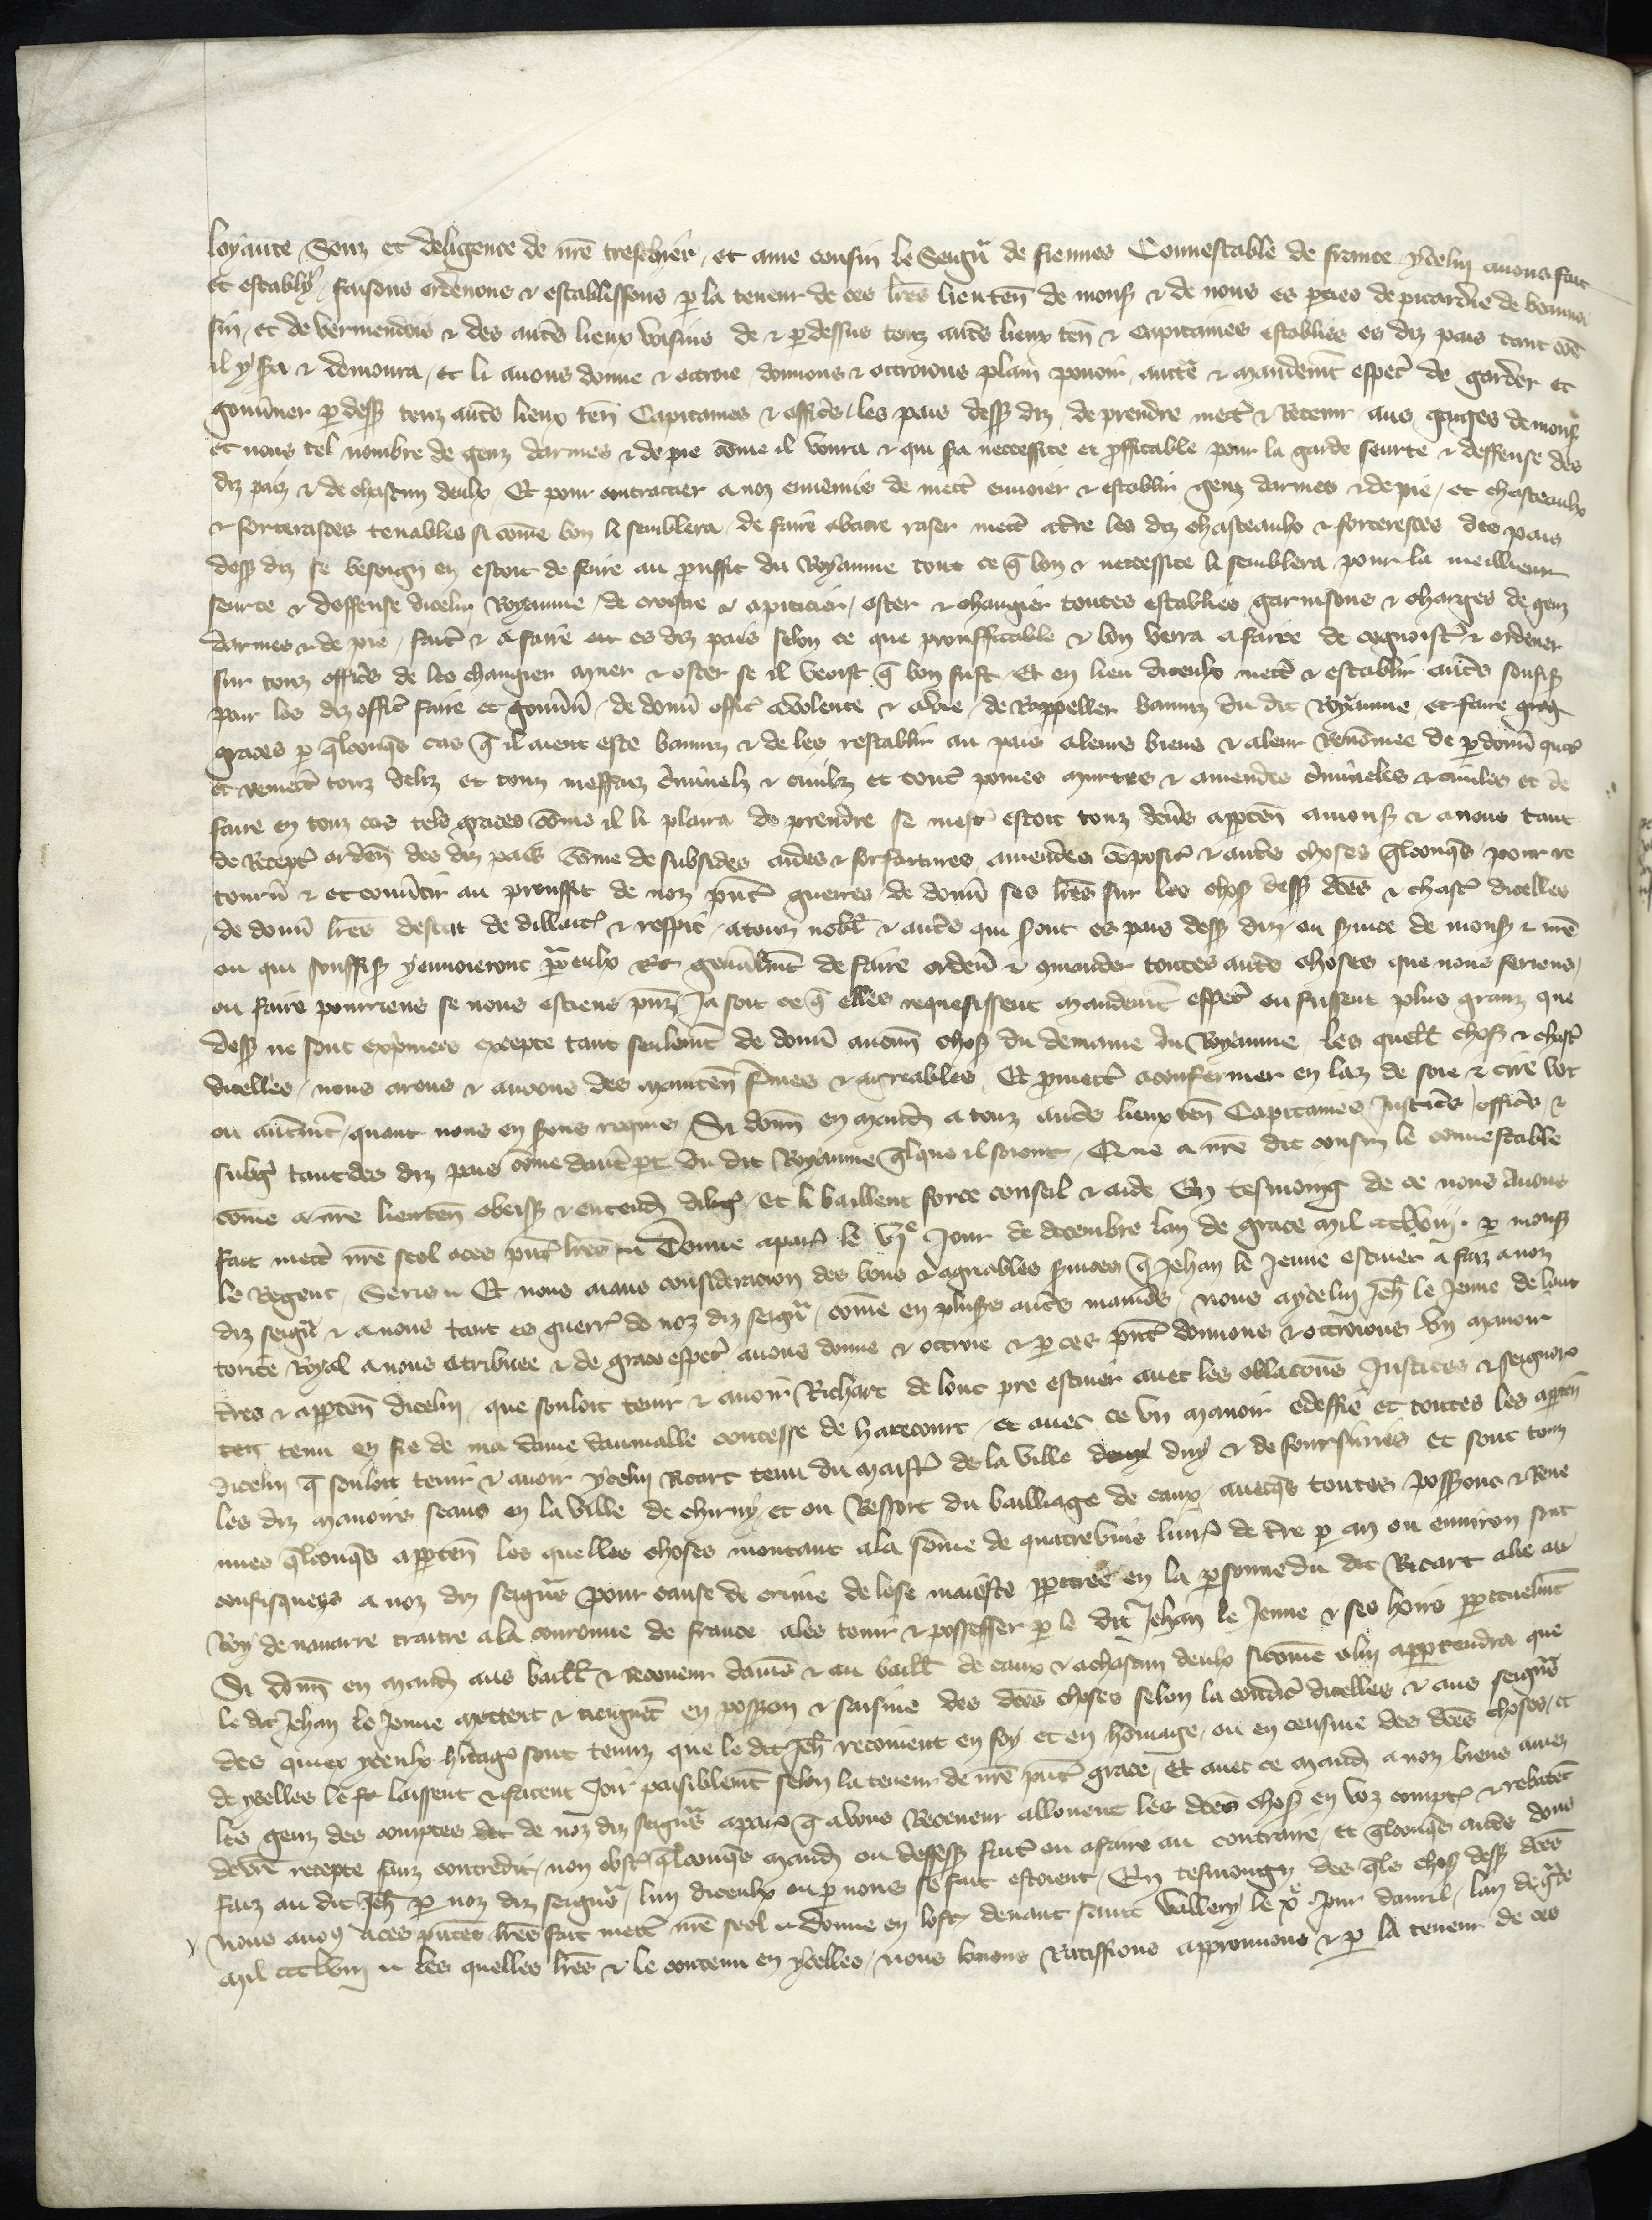 loyaute, Senz et deligence de nr̄e treschier, et ame cousin le Seigr̄ de fiennes Connestable de france ycelui auons fait
et establÿ, faisons ordenons & establissons p la teneur de ces lr̄es lieuten̄ de mons & de nous es pties de picardie de beauuoi
sin, et de vermendois & des autēs lieux voisins de & p dessus touz autēs lieux ten̄ & Capitaines establies es diz pais tant cōe
il y sa & demoura, et li auons donne & ottroie donnons & ottroions plain pouoir auctē & mandemt̄ especl̄ de garder et
gouūner p dess touz autēs lieux ten̄ Capitaines & officēs, les pais dess diz, de prendre mectē & Retenir aus gaiges de mons
et nous tel nombre de genz darmes & de pie cōme il voura & qui sa neccessire et pffitable pour la garde seurte & deffense des
diz paiz & de chascun deulx Et pour contraitier a noz ennemis de mectē enuoier & establir genz darmes & de pie, et chasteaulx
& forteresces tenables si cōme bon li semblera, de faire abatre raser mectē a tr̄e les diz chasteaulx & forteresces des pais
dess diz se besoign en estoit de faire au prouffit du Royaume tout ce q̄ bon & neccessire li semblera pour la meillieur
seurte & deffense dicelui Royaume, de croistre & apeticier, oster & changier toutes establies garnisons & charges de genz
darmes & de pie, faitē & a faire et es diz pais selon ce que prouffitable & bon verra a faire de cognoistē & ordener
sur touz officēs de les changier muer & oster se il veoist q̄ bon fust Et en lieu diceulx mectē & establir autēs souffis
pour les diz officē faire et gouūn̄, de donn̄ officē a volente & a vie, de Rappeller banniz du dit Royaume, et faire grac
graces p q̄lconqs cas q̄ il aient este banniz & de les restablir au pais a leurs biens & a leur Renōmee de p donn̄ quictē
et remectē touz deliz et touz meffaiz c̄minelz & ciuilz et toutē peines murtres & amendes c̄mineles & ciuiles et de
faire en touz cas tels graces cōme il li plaira de prendre se mestē estoit touz deniēs apptēn a mons & a nous tant
de Receptē orden̄ des diz pais cōme de subsides aides & forfaitures amendes cōposicō & autēs choses q̄lconqs pour re
tourn̄ & et conūtir au prouffit de noz pn̄tē guerres de donn̄ ses lr̄es sur les chos dess dc̄es & chascē dicelles
de donn̄ lr̄es destat de dillatē & respit, a touz nobl̄ & autēs qui sont es pais dess diz, ou suice de mons & nr̄e
ou qui souffis y enuoieront p eulx Et gen̄alm̄t de faire orden̄ & cmander toutes autēs choses que nous feriens,
ou faire pourriens se nous estiens pn̄s, Ja soit ce q̄ elles requeissent mandemt̄ especl̄ ou fussent plus granz que
dess ne sont exp̄mees excepte tant seulemt̄ de donn̄ aucun̄ chos du demaine du Royaume les quell̄ chos & chascē
dicelles, nous arons & auons des mainten̄ fr̄mes & agreables Et pmectē a confermer en laz de soie & cire vert
ou autremt̄, quant nous en sons requis, Si donn̄ en mand a touz autēs lieux ten̄ Capitaines Justicēs, officēs, &
subgē tant des diz pais cōme dautē pt̄ du dit Royaume q̄lque il soient, Que a nr̄e dit cousin le connestable
cōme a nr̄e lieuten̄ obeiss & entend diligē, et li baillent force conseil & aide En tesmoing de ce nous Auons
fait mectē nr̄e seel a ces pn̄tē lr̄es Donne a parē le vj.e Jour de decembre lan de grace mil ccclviij. p mons
le Regent, Seris Et nous aians consideracion des bons & agreables suices q̄ Jehan le Jeune escuier a faiz a noz
diz seigr̄s & a nous tant es guerrē de noz diz seigr̄s, cōme en pluss autēs manieēs, nous aycelui Jeh̄ le Jeune de lauc
torite Royal a nous atribuee & de grace especl̄ auons donne & ottroie & p ces pn̄tē donnons & ottroions vn manoir
tr̄es & apptēn dicelui, que souloit tenir & auoir Richart de lonc pre escuier auec les oblacōns Justices & seignors
ten tenu en fie de ma dame daumalle contesse de harecourt, et auec ce vn manoir edeffie et toutes les apptēn
dicelui q̄ souloit tenir & auoir ycelui Ricart tenu du maistē de la ville deuy duy & de sourfurins et sont touz
les diz manoirs seans en la ville de churuy, et ou Ressort du bailliage de caux, auecqs toutes possions & Reue
nues q̄lconqs apptēn les quelles choses montant a la sōme de quatrevins liurē de tr̄e p an ou enuiron sont
confisquees a noz diz seigr̄s pour cause de crime de lese maieste ppetree en la psonne du dit Ricart alie au
Roy de nauarre traitre a la couronne de france ales tenir & posseesser p le dit Jehan le Jeune & ses hoirs ppetuelm̄t
Si donn̄ en mand aus baill̄ & Receueur damiēs & au baill̄ de caux & a chascun deulx si cōme a lui apptendra que
le dit Jehan le Jeune mettent & tiengnēt en possion & saisine des dc̄es choses selon la condicō dicelles & aus seigr̄s
des quiex yceulx hr̄itages sont tenuz que le dit Jeh̄ recoiuent en foy et en hōmage, ou en censiue des dc̄es choses, et
de ycelles le ft laissent & facent Joir paisiblemt̄ selon la teneur de nr̄e pn̄tē grace, Et auec ce mand a noz biens amez
les genz des comptes dec de noz diz seigr̄s a parē q̄ a vous Receueur allouent les dc̄es chos en voz comptē & rebatēt
de vr̄e recepte sanz contredit, non obstē q̄lconqs mand ou deffess faitē ou a faire au contraire, et q̄lconqs autēs dons
faiz au dit Jeh̄ p noz diz seigr̄s, lun diceulx ou p nous se fait estoient, En tesmoingn des q̄ls chos dess dc̄es
nous auons a ces pn̄tes lr̄es fait mectē nr̄e seel Donne en lost deuant saint Wallery le xe. Jour dauril, lan de grace
mil ccclviij Les quelles lr̄es & le contenu en ycelles, nous louons Ratiffions approuuons & p la teneur de ces